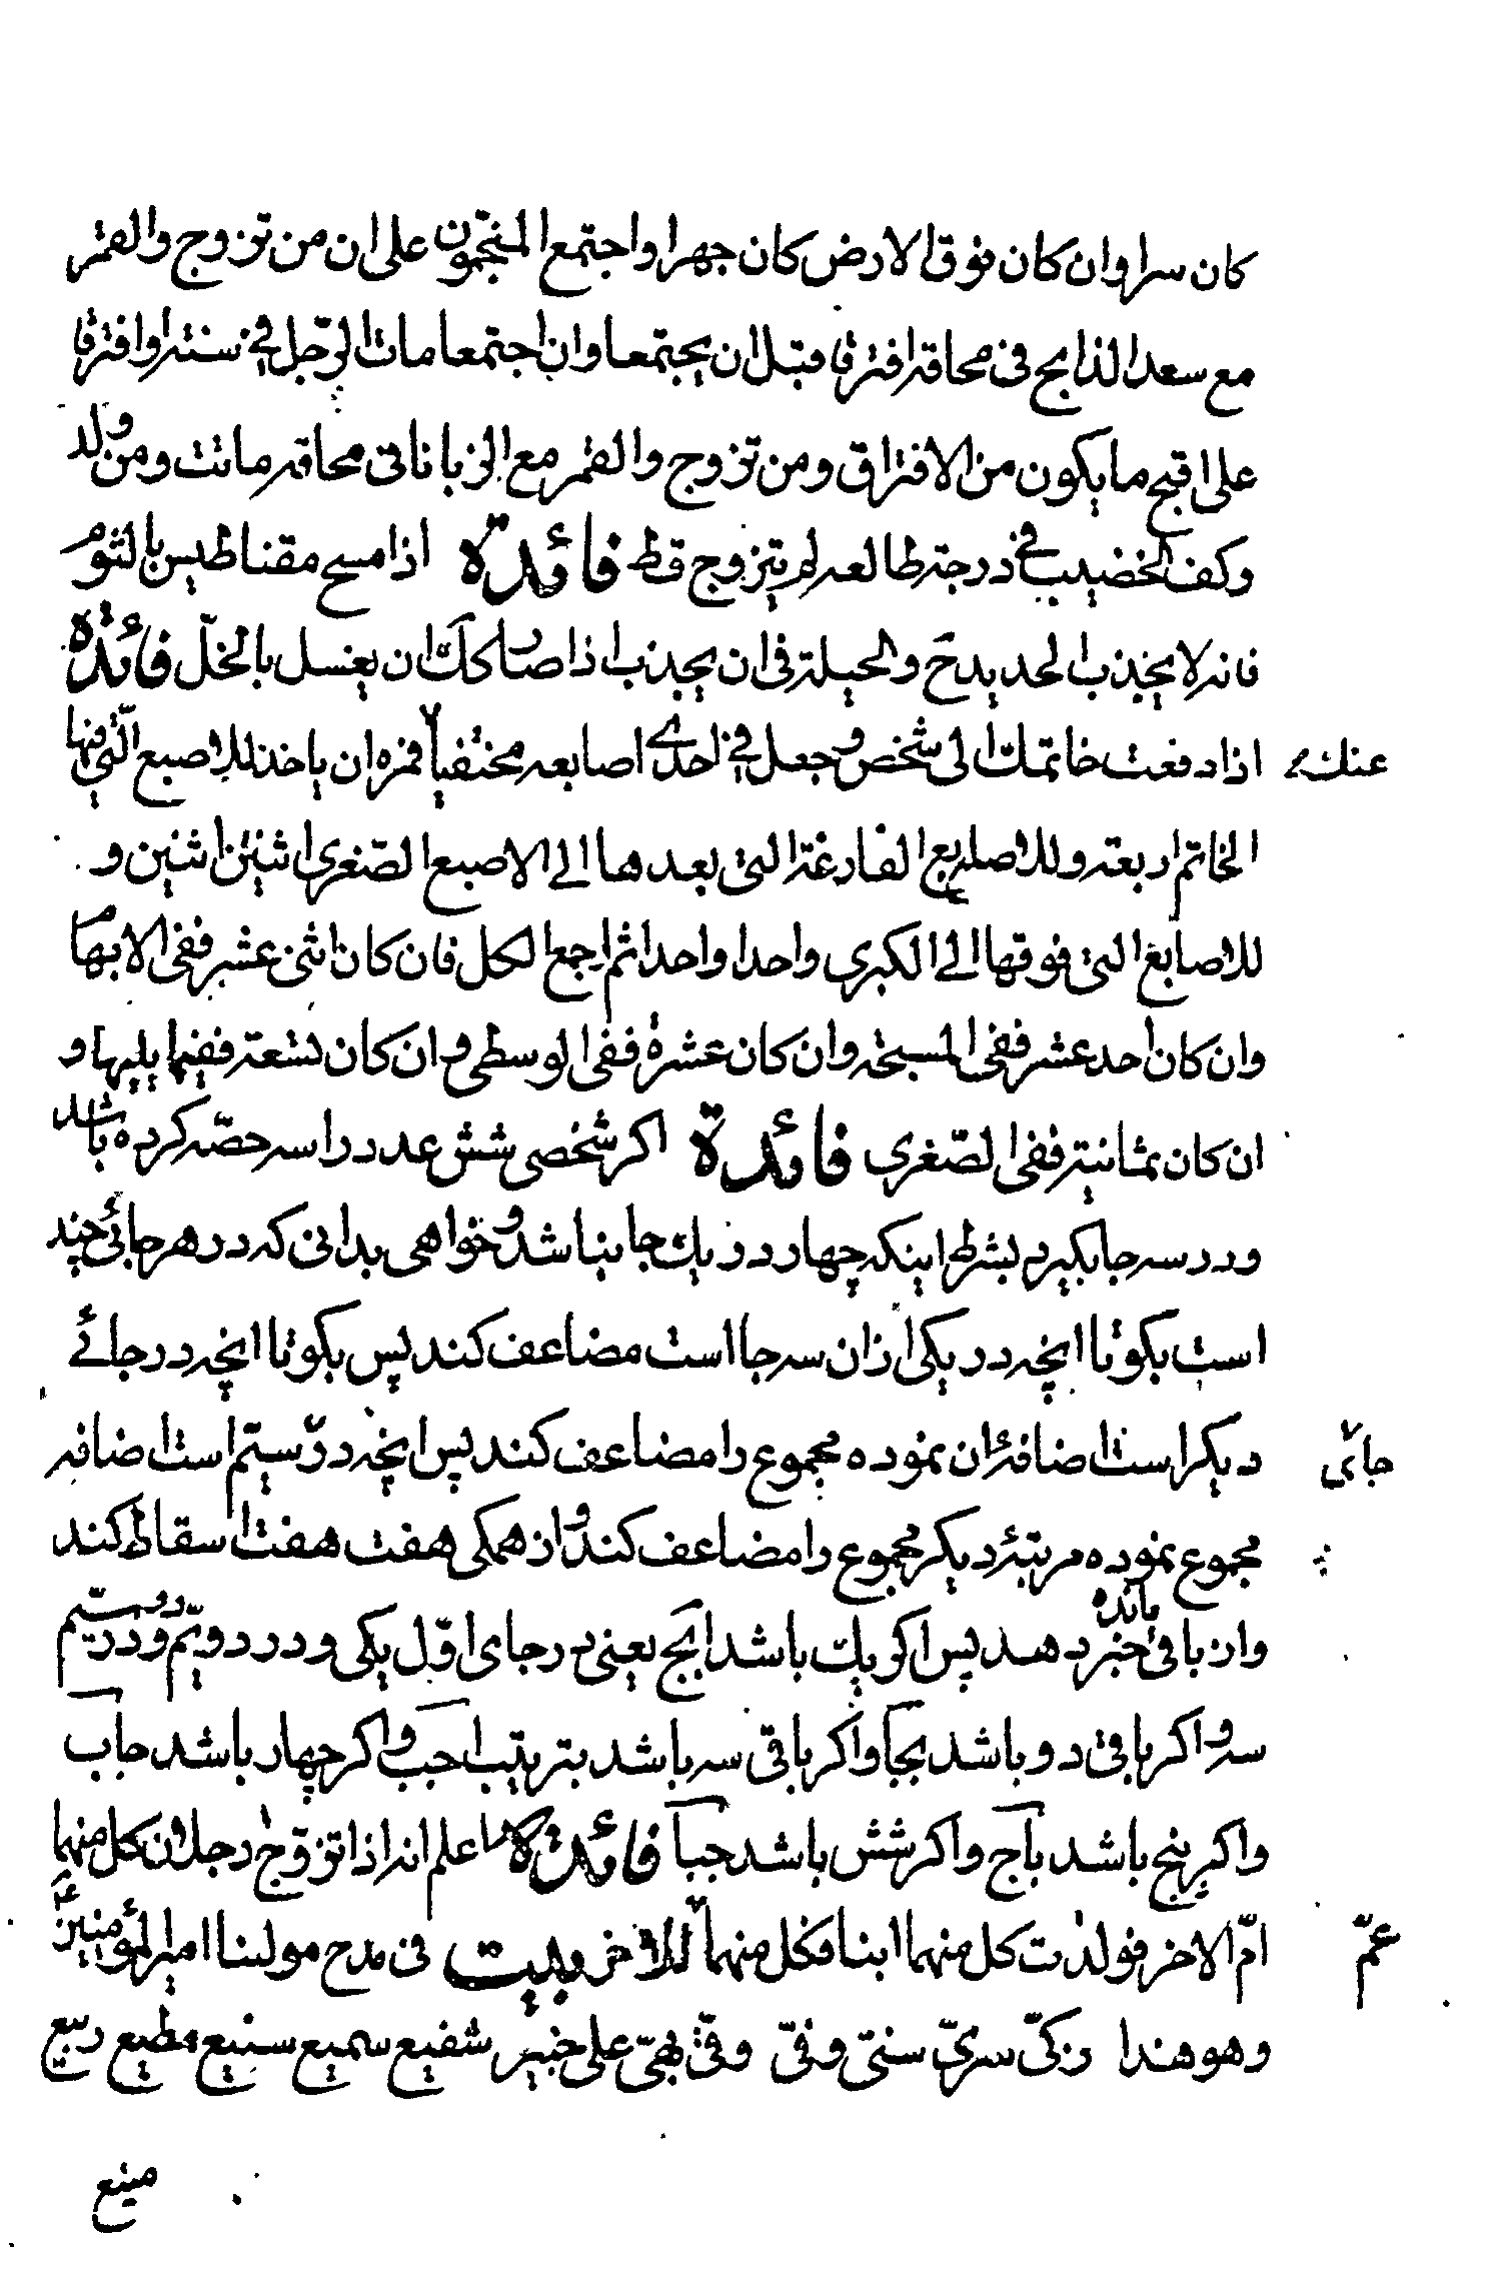 كان سرا وان كان فوق الارض كان جهرا واجتمع المنجّمون على ان من تزوج والقمر
مع سعد الذابح فى محاقه افترقا قبل ان يجتمعا وان اجتمعا مات الرّجل فى سنته او افترقا
على اقبح ما يكون من الافتراق ومن تزوج والقمر مع الزبانا فى محاقه ماتت ومن ولد
وكف الخضيب فى درجة طالعه لم يتزوج قط فائدة اذا مسح مقناطيس بالثوم
فانه لا يجذب الحديد ح والحيلة فى ان يجذب اذا صار كك ان يغسل بالخلّ فائدة
اذا دفعت خاتمك الى شخص وجعل فى احدى اصابعه مختفيا فمره ان ياخذ للاصبع الّتى فيها
عنك
الخاتم اربعة وللاصابع الفارغة التى بعدها الى الاصبع الصّغرى اثنين اثنين و
للاصابع التى فوقها الى الكبرى واحدا واحدا ثم اجمع الكل فان كان اثنى عشر ففى الابهام
وان كان احد عشر ففى المسبحة وان كان عشرة ففى الوسطى وان كان تسعة ففيما يليها و
ان كان ثمانية ففى الصّغرى فائدة اكر شخصى شش عدد را سه حصّه كرده باشد
ودر سه جا بكيرد بشرط اينكه چهار در يك جا نباشد وخواهى بدانى كه در هر جائى چند
است بكو تا انچه در يكى از ان سه جا است مضاعف كند پس بكو تا انچه در جائے
ديكر است اضافۀ ان نموده مجموع را مضاعف كند پس انچه در سيّم است اضافه
جائى
مجموع نموده مرتبۀ ديكر مجموع را مضاعف كند واز همكى هفت هفت اسقاط كند
واز باقى مانده خبر دهد پس اكر يك باشد ابج يعنى در جاى اوّل يكى ودر دويّم دو ودر سيّم
سه واكر باقى دو باشد بجا واكر باقى سه باشد بترتيب احب واكر چهار باشد جاب
واكر پنج باشد باج واكر شش باشد جبا فائدة اعلم انه اذا تزوّج رجلان كل منهما
امّ الاخر فولدت كل منهما ابنا فكل منهما للاخر بيت فى مدح مولينا امير المؤمنين ع
عمّ
وهو هذا زكىّ سرىّ سنىّ وفىّ وقىّ بهىّ علىّ خبير شفيع سميع سنيع مطيع ربيع
منيع